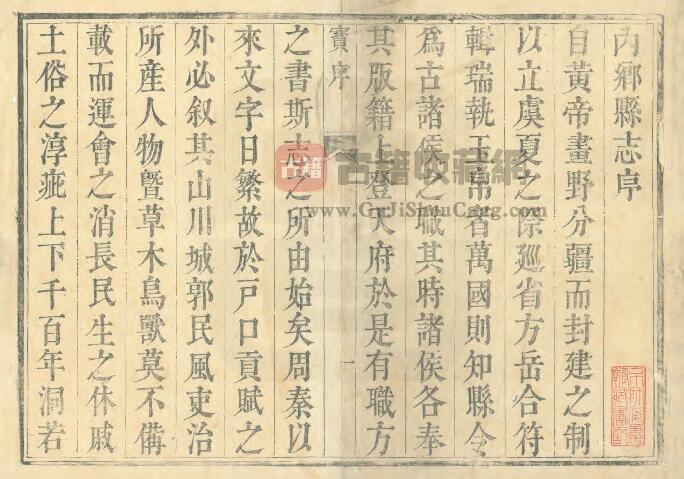 內鄉縣志序
自黃帝畫野分疆而封建之制
以立虞夏之際廵省方岳合符
輯瑞執玉帛者萬國則知縣令
為古諸侯之職其時諸侯各奉
其版籍上登天府於是有職方
寶序
一
之書斯志之所由始矣周秦以
來文字日繁故於戶口貢賦之
外必叙其山川城郭民風吏治
所產人物曁草木鳥獸莫不備
載而運會之消長民生之休戚
土俗之淳疵上下千百年洞若
古籍
古籍收藏網
www.GuJiShouCang.com